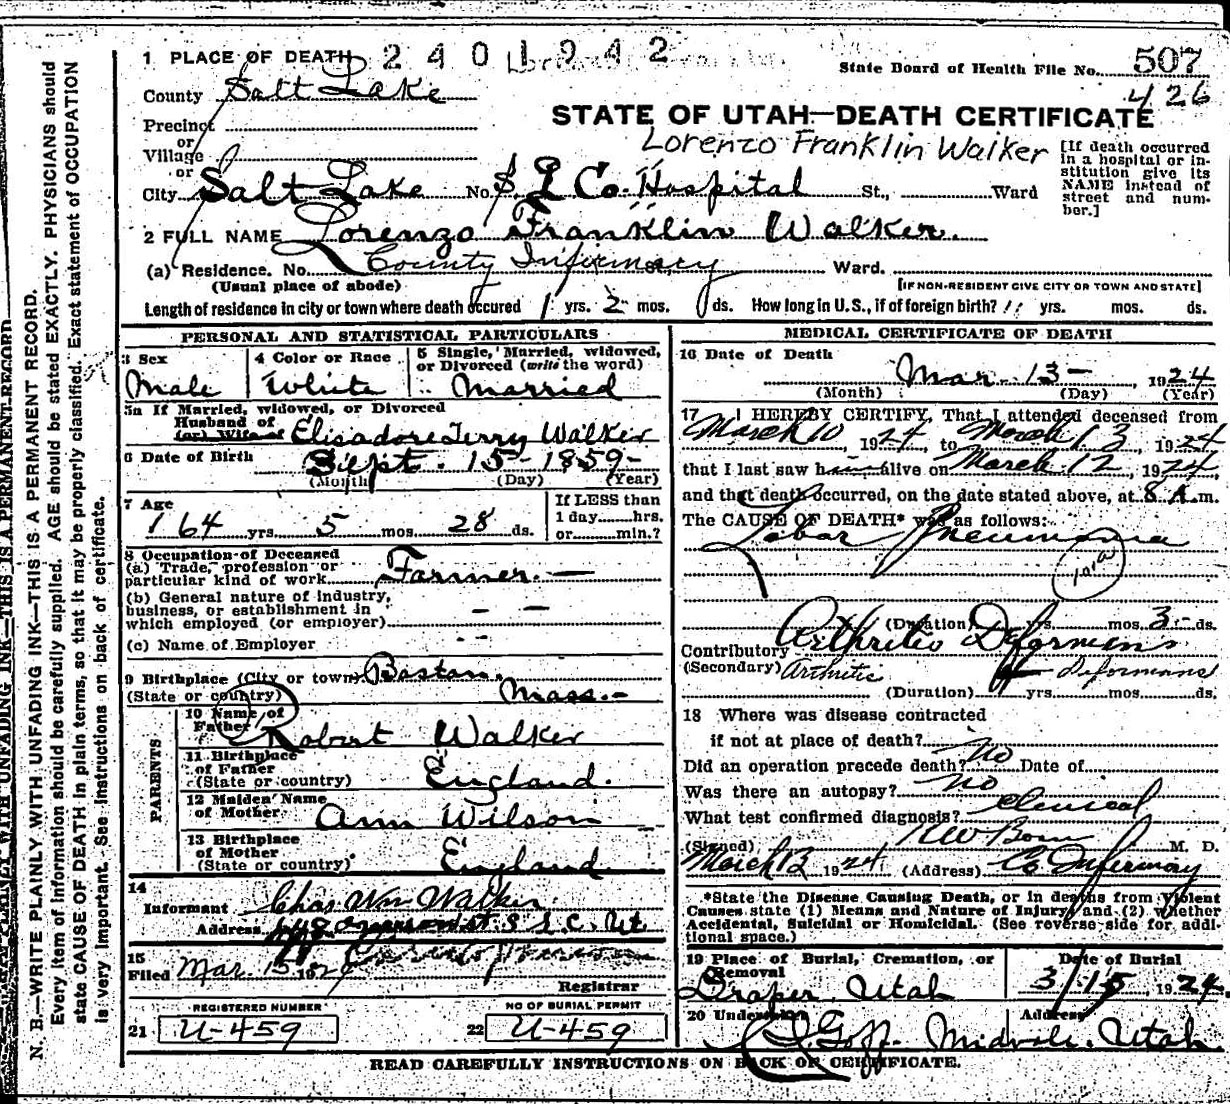 1 PLACE OF DEATH 2401942
State Board of Health File No. 507
County Salt Lake
426
STATE OF UTAH—DEATH CERTIFICATE
Precinct
or
Village
or
Lorenzo Franklin Walker
[If death occurred in a hospital or institution give its NAME instead of street and number.]
City Salt Lake No. S L Co. Hospital St., Ward
2 FULL NAME Lorenzo Franklin Walker.
(a) Residence. No. County Infirmary Ward.
(Usual place of abode) [IF NON-RESIDENT GIVE CITY OR TOWN AND STATE]
Length of residence in city or town where death occured 1 yrs. 2 mos. ds. How long in U.S., if of foreign birth? yrs. mos. ds.
PERSONAL AND STATISTICAL PARTICULARS
3 Sex Male
4 Color or Race White
5 Single, Married, widowed, or Divorced (write the word) Married
5a If Married, widowed, or Divorced
Husband of
(or) Wife of Elisadore Terry Walker
6 Date of Birth Sept. 15 - 1859 -
(Month) (Day) (Year)
7 Age
64 yrs. 5 mos. 28 ds.
If LESS than
1 day......hrs.
or......min.?
8 Occupation of Deceased
(a) Trade, profession or
particular kind of work Farmer. —
(b) General nature of industry,
business, or establishment in
which employed (or employer) - -
(c) Name of Employer - -
9 Birthplace (City or town) Boston.
(State or country) Mass. -
PARENTS
10 Name of
Father Robert Walker
11 Birthplace
of Father
(State or country) England.
12 Maiden Name
of Mother Ann Wilson
13 Birthplace
of Mother
(State or country) England
14
Informant Chas Wm Walker
Address S L C. Ut
15
Filed Mar. 15 192
Registrar
REGISTERED NUMBER
21 U-459
NO OF BURIAL PERMIT
22 U-459
MEDICAL CERTIFICATE OF DEATH
16 Date of Death
Mar. 13 - , 1924
(Month) (Day) (Year)
17 I HEREBY CERTIFY, That I attended deceased from
March 10, 1924, to March 13, 1924
that I last saw h alive on March 12, 1924,
and that death occurred, on the date stated above, at 8 A.m.
The CAUSE OF DEATH* was as follows:
Lobar Pneumonia
(Duration) yrs. mos. 3 ds.
Contributory Arthritis Deformans
(Secondary) Arthritic Deformans
(Duration) yrs. mos. ds.
18 Where was disease contracted
if not at place of death?
Did an operation precede death? No Date of
Was there an autopsy? No
What test confirmed diagnosis? Clinical
(Signed) M. D.
March 13 1924 (Address) Co Infirmary
*State the Disease Causing Death, or in deaths from Violent
Causes state (1) Means and Nature of Injury and (2) whether
Accidental, Suicidal or Homicidal. (See reverse side for addi-
tional space.)
19 Place of Burial, Cremation, or
Removal
Draper, Utah
Date of Burial
3/15, 1924.
20 Undertaker
Goff. Midvale, Utah.
Address
READ CAREFULLY INSTRUCTIONS ON BACK OF CERTIFICATE.
N. B.—WRITE PLAINLY WITH UNFADING INK—THIS IS A PERMANENT RECORD.
Every item of information should be carefully supplied. AGE should be stated EXACTLY. PHYSICIANS should
state CAUSE OF DEATH in plain terms, so that it may be properly classified. Exact statement of OCCUPATION
is very important. See instructions on back of certificate.